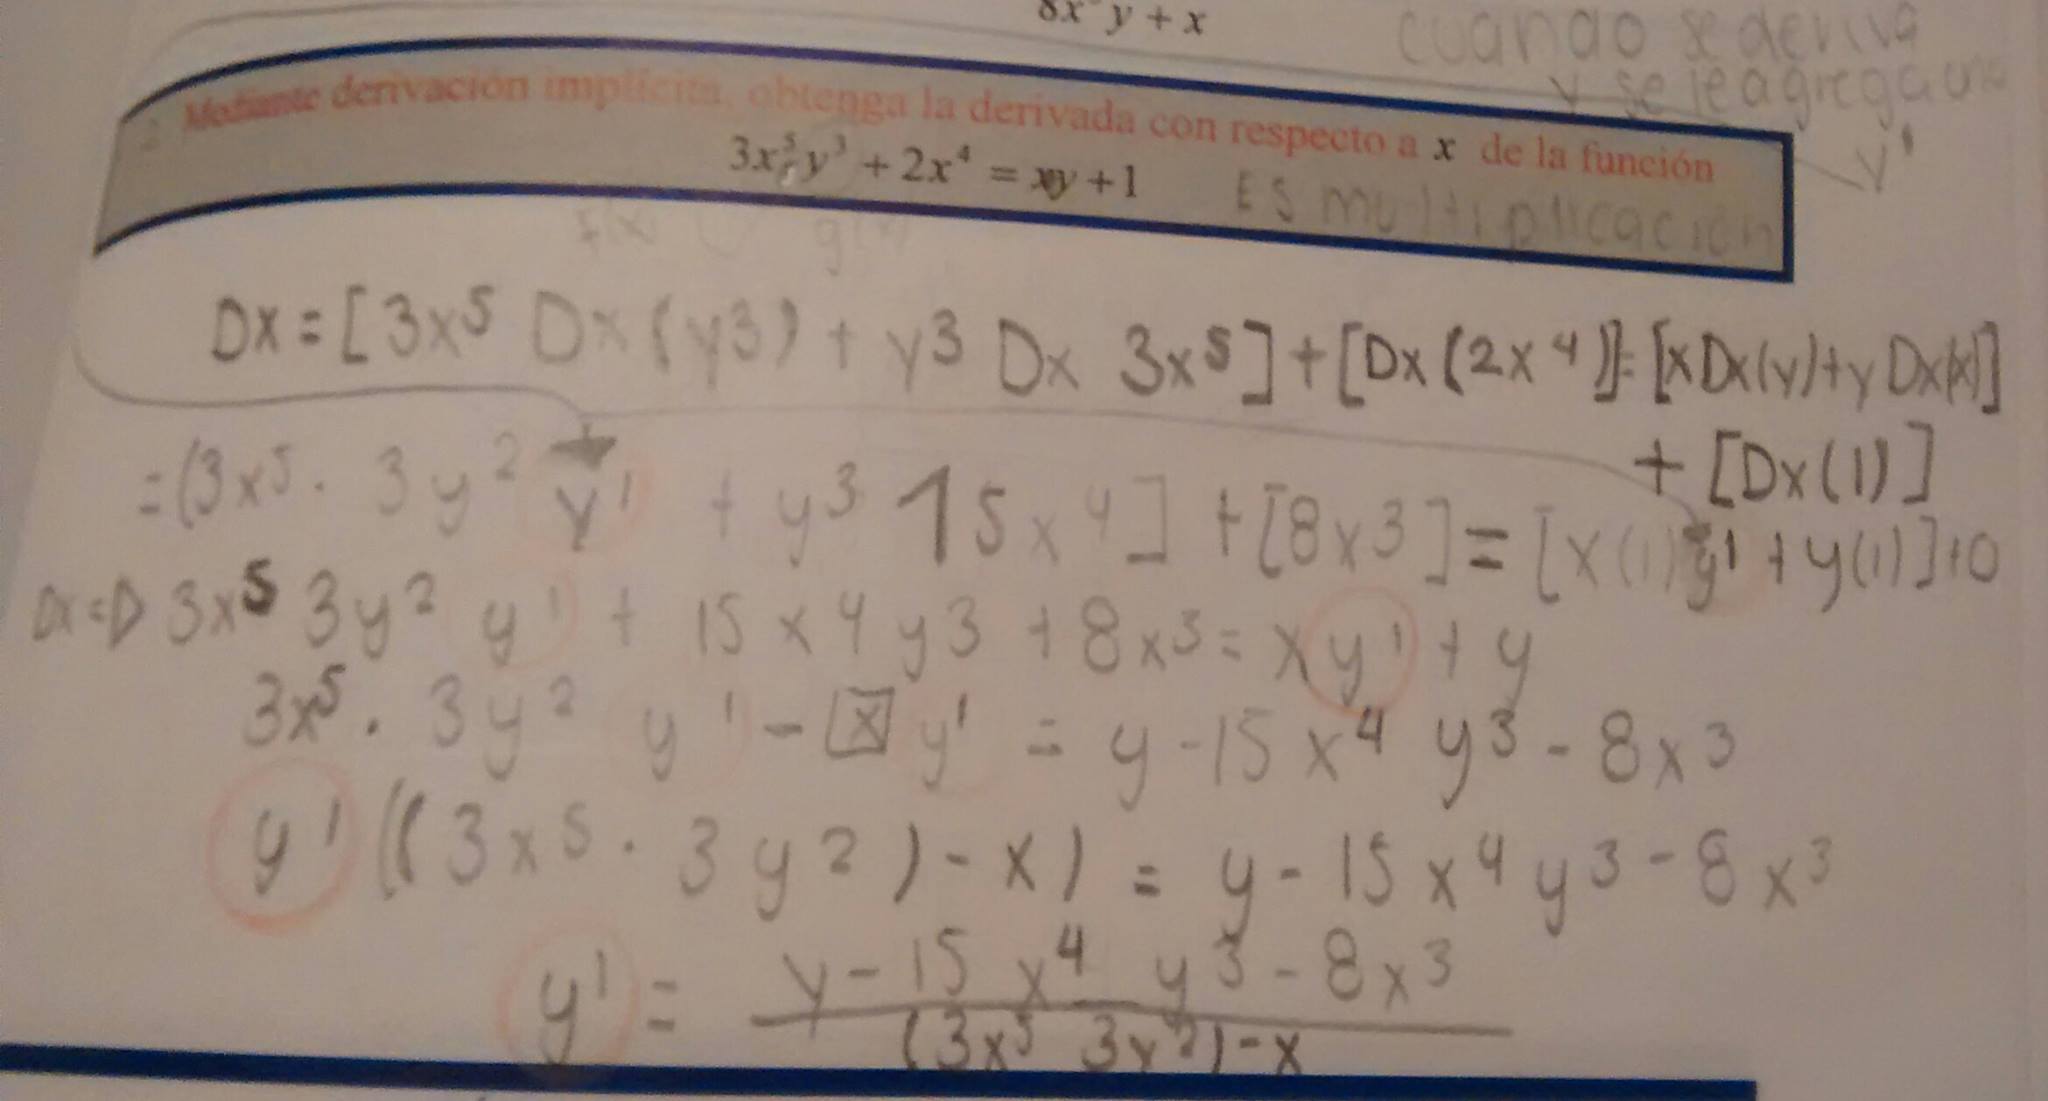 8x y + x
cuando se deriva
y se le agrega una
y'
2. Mediante derivación implícita, obtenga la derivada con respecto a x de la función
3x⁵y³ + 2x⁴ = xy + 1
Es multiplicación
f(x) g(x)
Dx = [3x⁵ Dx (y3) + y³ Dx 3x⁵] + [Dx (2x⁴)] = [x Dx(y) + y Dx(x)]
+ [Dx(1)]
= (3x⁵ · 3y² y' + y³ 15x⁴] + [8x3] = [x(1)y' + y(1)] + 0
Dx = D 3x⁵ 3y² y' + 15x4 y3 + 8x³ = xy' + y
3x⁵ · 3y² y' - x y' = y - 15x⁴ y³ - 8x³
y' ((3x⁵ · 3y²) - x) = y - 15x⁴ y³ - 8x³
y' = y - 15x⁴ y³ - 8x³
(3x⁵ 3y²) - x